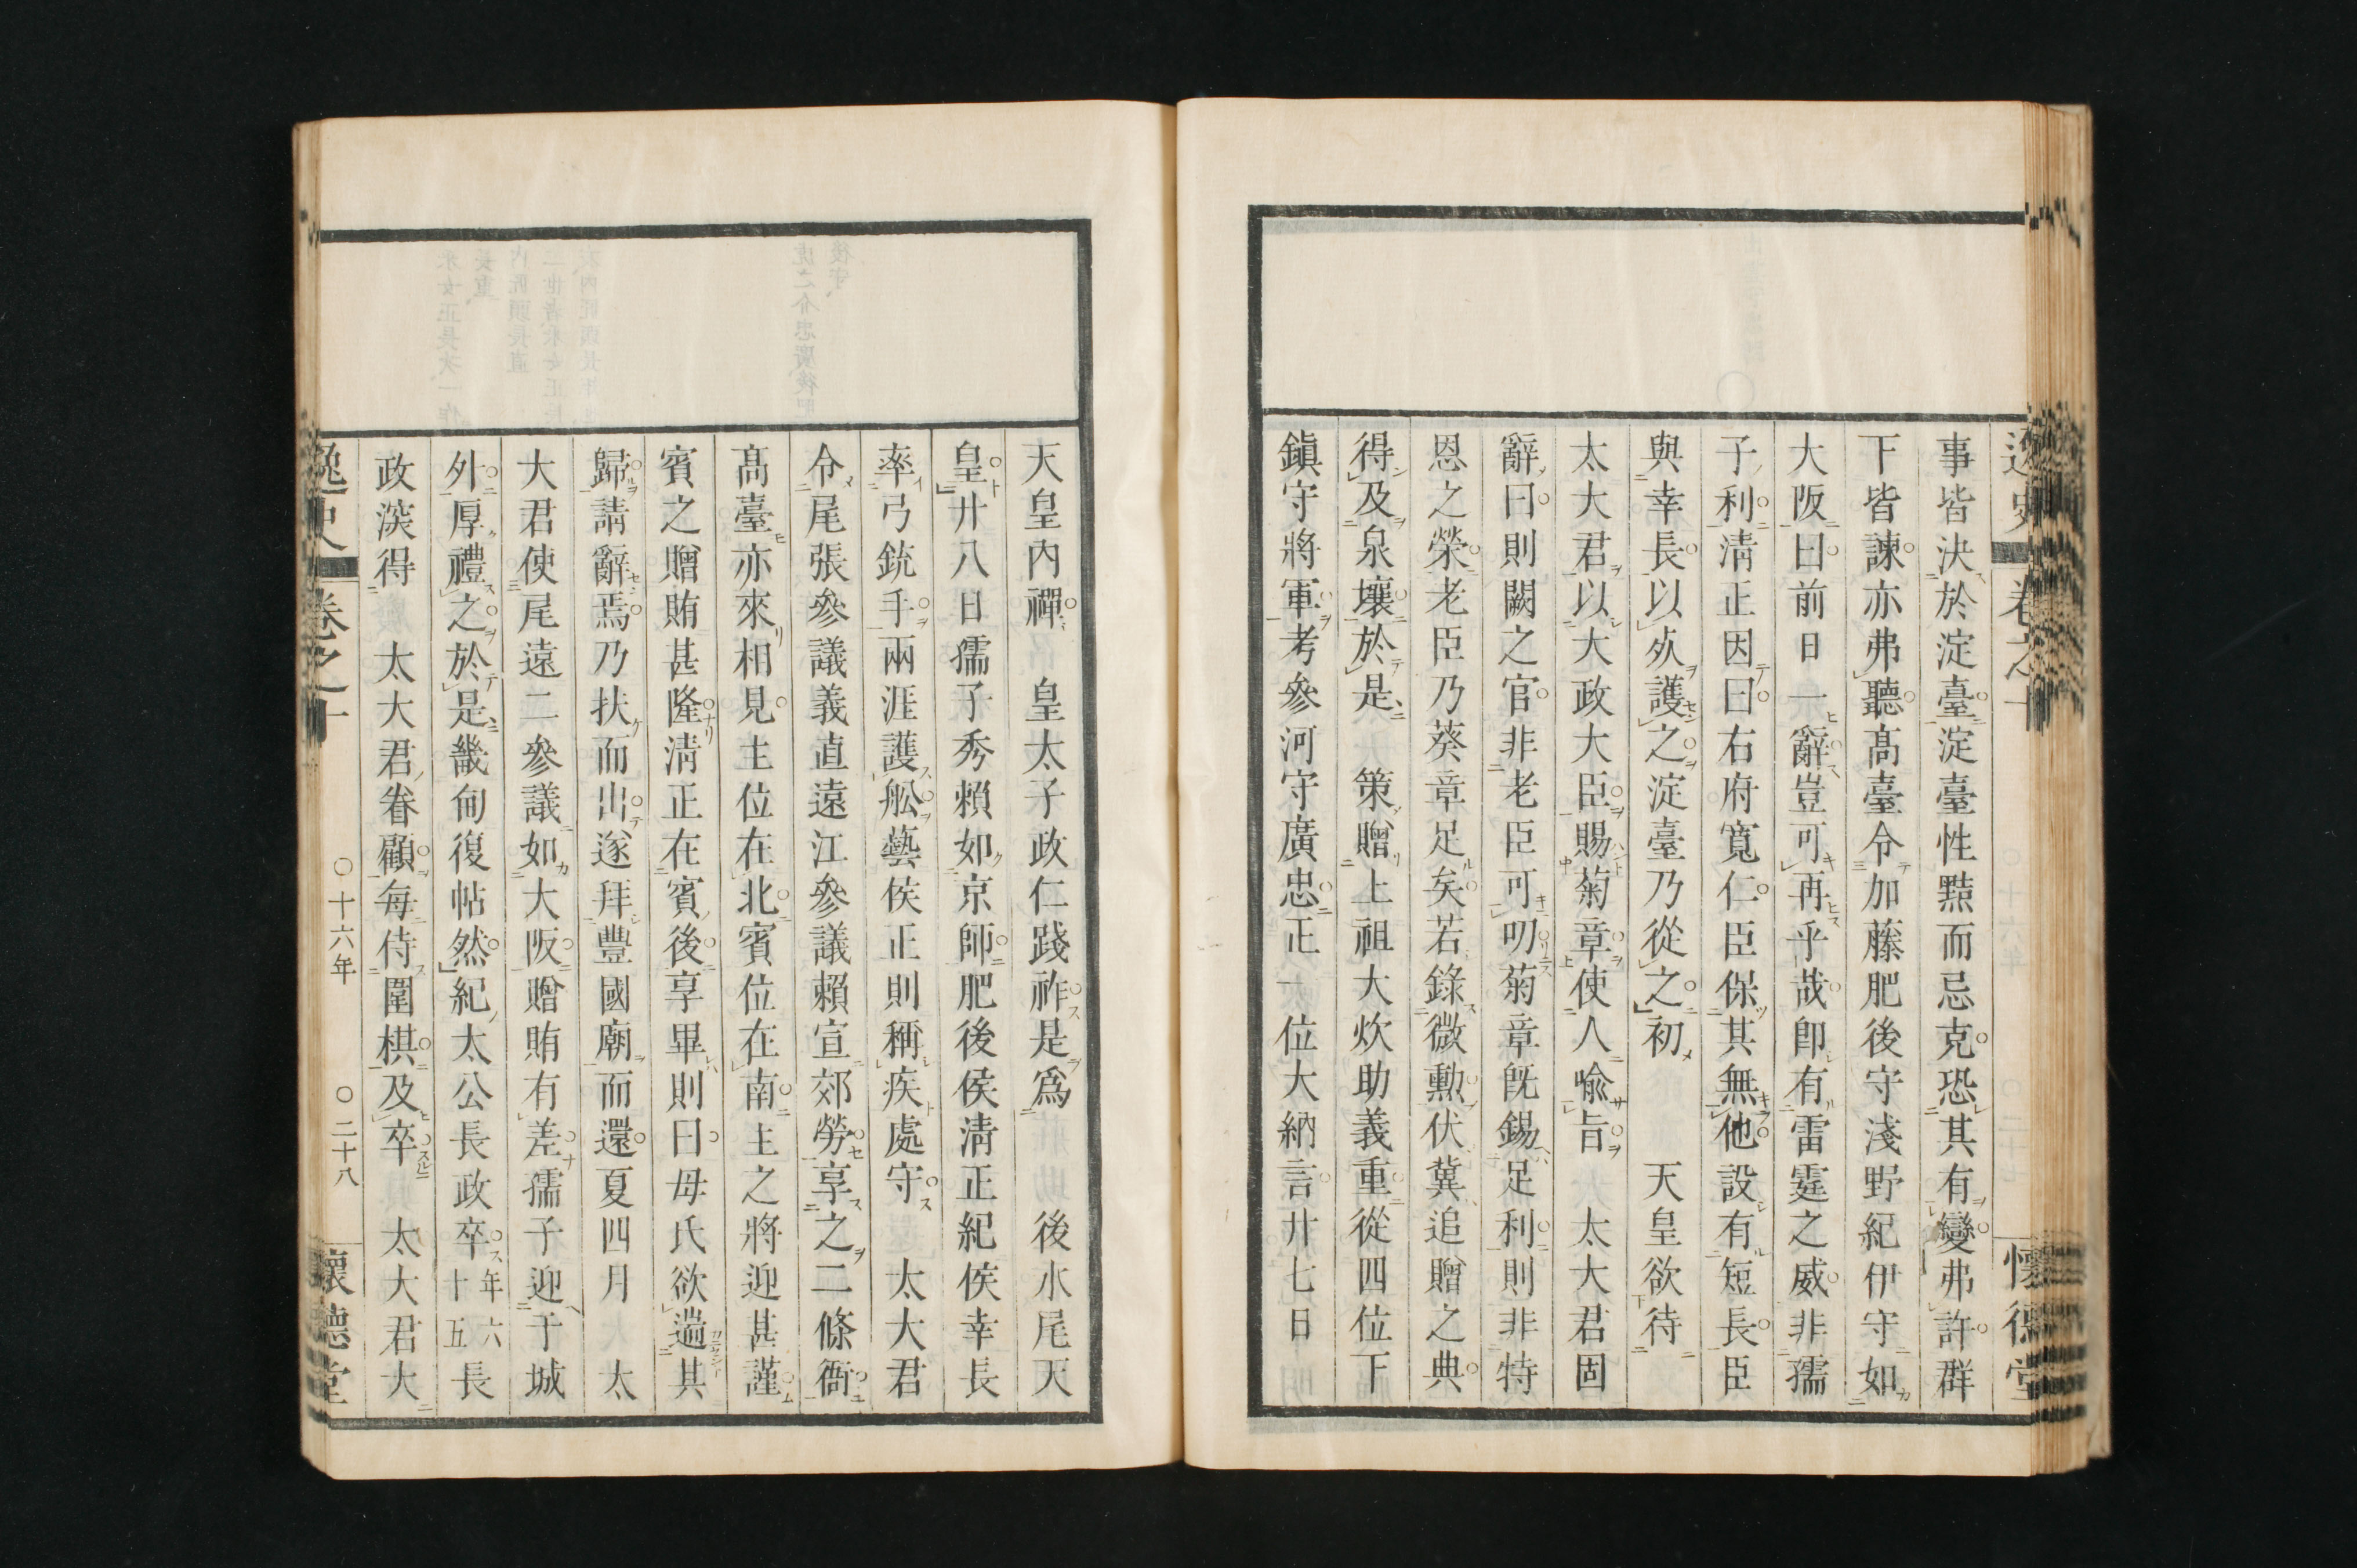 事皆決於淀臺淀臺性黠而忌克恐其有變弗許群
下皆諫亦弗聽髙臺令加藤肥後守淺野紀伊守如
大阪曰前日一辭豈可再乎哉卽有雷霆之威非孺
子利淸正因曰右府寬仁臣保其無他設有短長臣
與幸長以死護之淀臺乃從之初 天皇欲待
太大君以大政大臣賜菊章使人喩旨 太大君固
辭曰則闕之官非老臣可叨菊章旣錫足利則非特
恩之榮老臣乃葵章足矣若錄微勳伏冀追贈之典
得及泉壤於是 策贈上祖大炊助義重從四位下
鎭守將軍考參河守廣忠正一位大納言廿七日
天皇內禪 皇太子政仁踐祚是爲 後水尾天
皇廿八日孺子秀賴如京師肥後侯淸正紀侯幸長
率弓銃手兩涯護舩藝侯正則稱疾處守 太大君
令尾張參議義直遠江參議賴宣郊勞享之二條衙
髙臺亦來相見主位在北賓位在南主之將迎甚謹
賓之贈賄甚隆淸正在賓後享畢則曰母氏欲遄其
歸請辭焉乃扶而出遂拜豐國廟而還夏四月 太
大君使尾遠二參議如大阪贈賄有差孺子迎于城
外厚禮之於是畿甸復帖然紀太公長政卒年六十五長
政深得 太大君眷顧每侍圍棋及卒 太大君大
逸史 卷之十 〇十六年 〇二十八 懷德堂